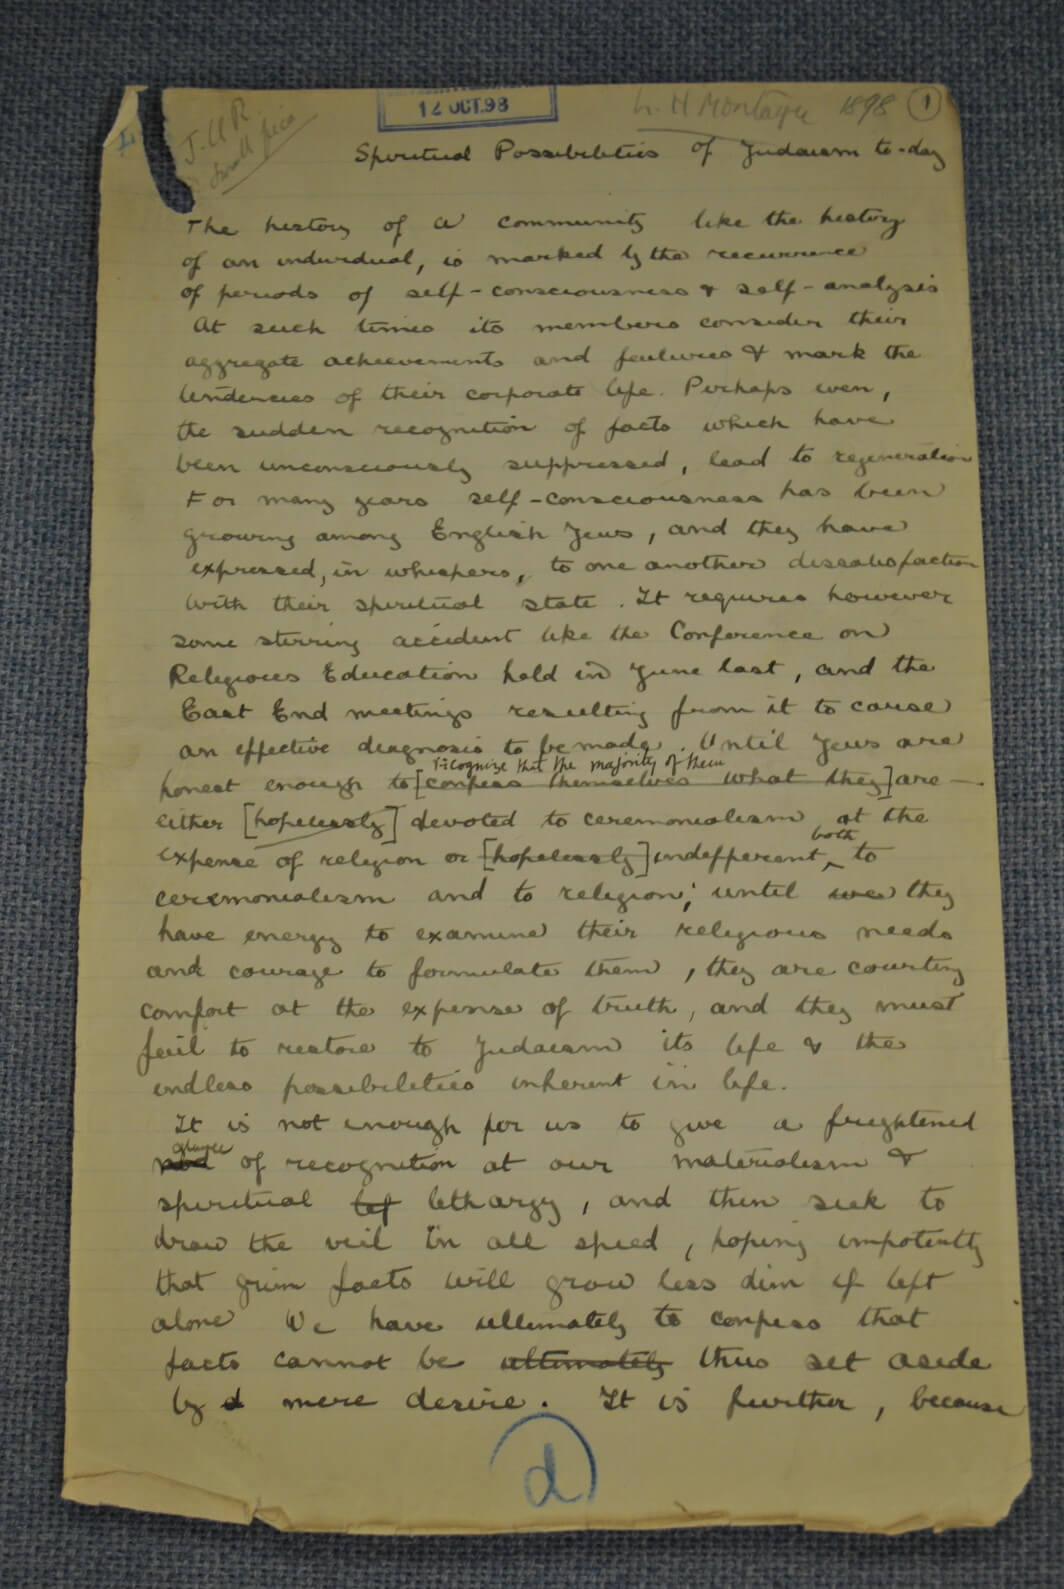 12 OCT. 98
L. H Montagu 1898 1
J.Q.R
Small pica
Spiritual Possibilities of Judaism to-day
The history of a community like the history
of an individual, is marked by the recurrence
of periods of self-consciousness & self-analysis
At such times its members consider their
aggregate achievements and failures & mark the
tendencies of their corporate life. Perhaps even,
the sudden recognition of facts which have
been unconsciously suppressed, lead to regeneration
For many years self-consciousness has been
growing among English Jews, and they have
expressed, in whispers, to one another dissatisfaction
with their spiritual state. It requires however
some stirring accident like the Conference on
Religious Education held in June last, and the
East End meetings resulting from it to cause
an effective diagnosis to be made. Until Jews are
recognize that the majority of them
honest enough to [confess themselves what they] are —
either [hopelessly] devoted to ceremonialism at the
both
expense of religion or [hopelessly] indifferent, to
ceremonialism and to religion; until we they
have energy to examine their religious needs
and courage to formulate them, they are courting
comfort at the expense of truth, and they must
fail to restore to Judaism its life & the
endless possibilities inherent in life.
It is not enough for us to give a frightened
glance
nod of recognition at our materialism &
spiritual let lethargy, and then seek to
draw the veil in all speed, hoping impotently
that grim facts will grow less dim if left
alone We have ultimately to confess that
facts cannot be ultimately thus set aside
by a mere desire. It is further, because
d